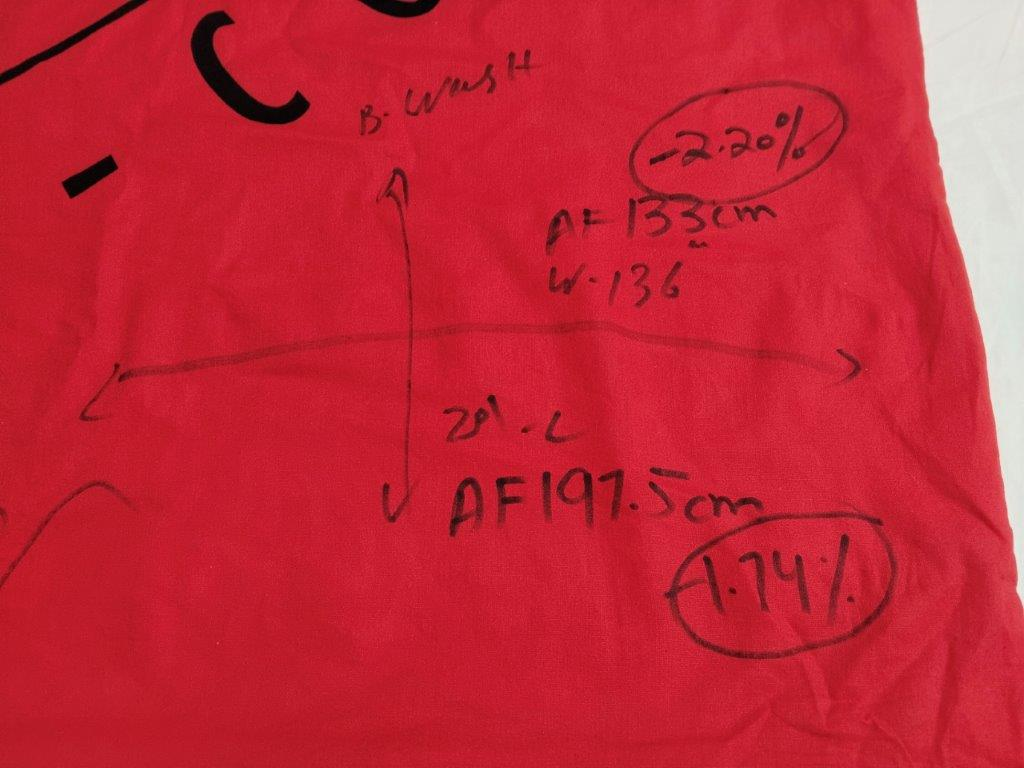 B. WasH
-2.20%
AF 133cm
W-136
201 - L
AF 197.5cm
-1.74%